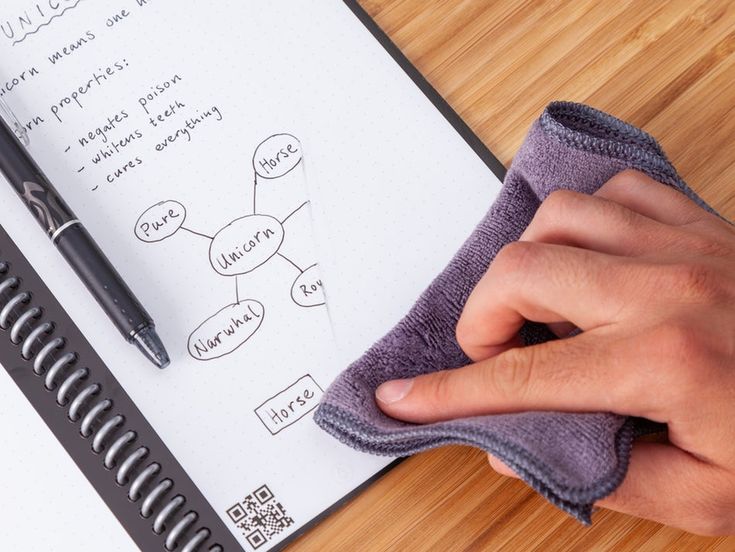 UNICO
icorn means one h
rn properties:
- negates poison
- whitens teeth
- cures everything
Horse
Pure
Unicorn
Roy
Narwhal
Horse